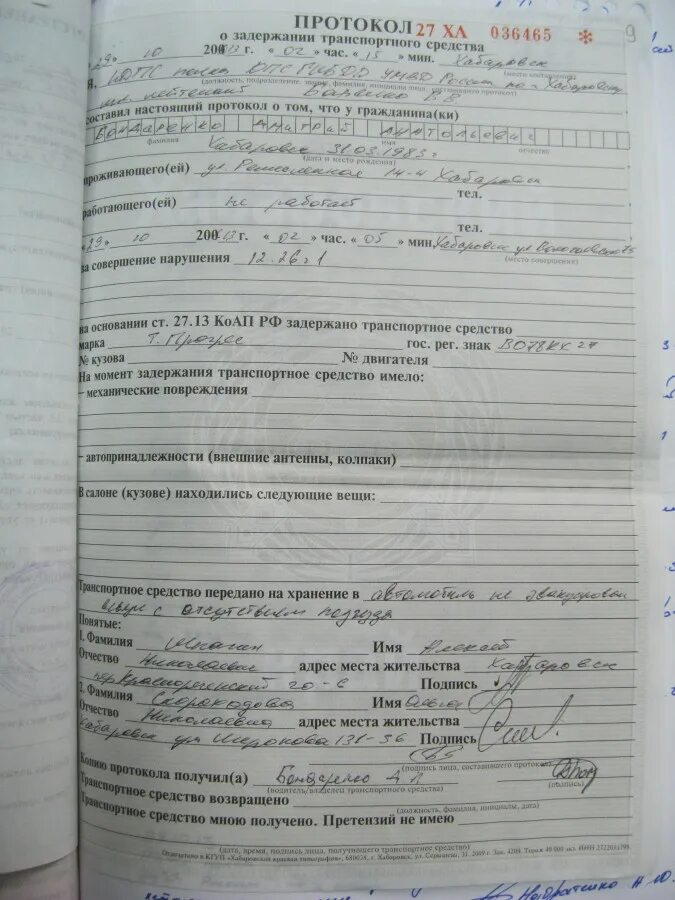 ПРОТОКОЛ 27 ХА 036465 * 9
о задержании транспортного средства
«29» 10 20013 г. «02» час. 15 мин. Хабаровск
(место составления)
Я, ИДПС полка ДПС ГИБДД УМВД России по г. Хабаровску
(должность, подразделение, звание, фамилия, инициалы лица, составившего протокол)
лейтенант
составил настоящий протокол о том, что у гражданина(ки)
БОНДАРЕНКО ДМИТРИЙ АНАТОЛЬЕВИЧ
фамилия имя отчество
Хабаровск 31.03.1983 г
(дата и место рождения)
проживающего(ей) ул. 14-4 Хабаровск
тел.
работающего(ей) не работает
тел.
«29» 10 20013 г. «02» час. «05» мин. Хабаровск ул 75
(место совершения)
за совершение нарушения 12.26 ч 1
на основании ст. 27.13 КоАП РФ задержано транспортное средство
марка Т. Прогрес гос. рег. знак В078КХ 27
№ кузова № двигателя
На момент задержания транспортное средство имело:
– механические повреждения
– автопринадлежности (внешние антенны, колпаки)
В салоне (кузове) находились следующие вещи:
Транспортное средство передано на хранение в автомобиль не эвакуирован
с отсутствием
Понятые:
1. Фамилия Имя Алексей
Отчество Николаевич адрес места жительства Хабаровск
пер Краснореченский 20-6 Подпись
2. Фамилия Скороходова Имя Ольга
Отчество Николаевна адрес места жительства
Хабаровск ул Широкова 131-36 Подпись
(подпись лица, составившего протокол)
Копию протокола получил(а) Бондаренко Д А
(водитель/владелец транспортного средства) (подпись)
Транспортное средство возвращено
(должность, фамилия, инициалы, дата)
Транспортное средство мною получено. Претензий не имею
(дата, время, подпись лица, получившего транспортное средство)
Отпечатано в КГУП «Хабаровская краевая типография», 680038, г. Хабаровск, ул. Серышева, 31. 2009 г. Зак. 4209. Тираж 40 000 экз.